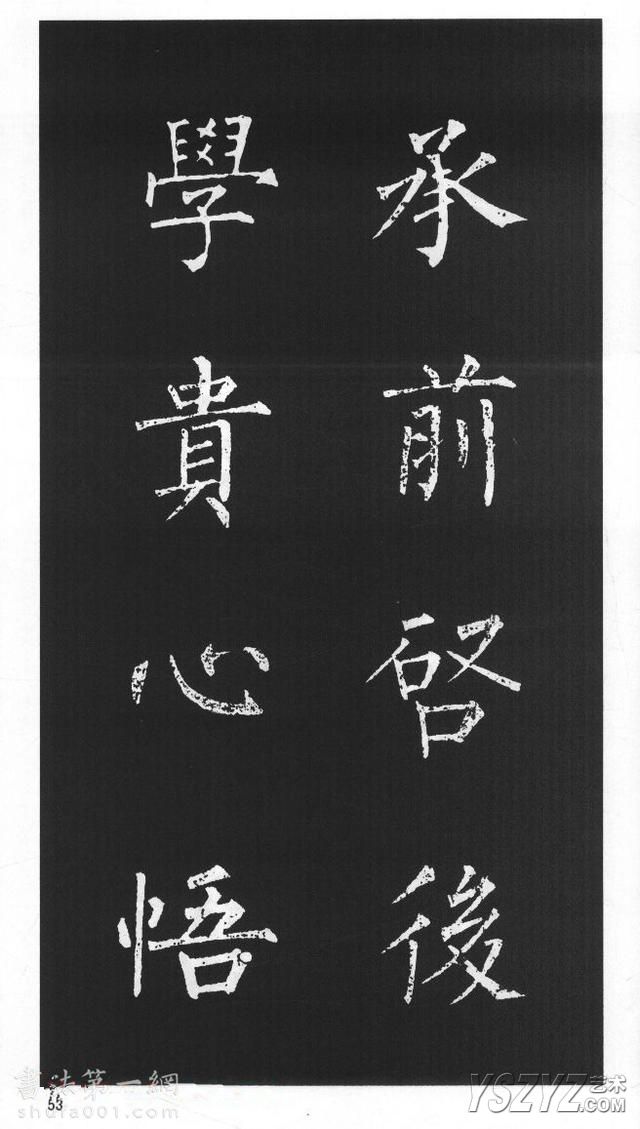 承前啓後
學貴心悟
53
書法第一網
shufa001.com
YSZYZ艺术.COM